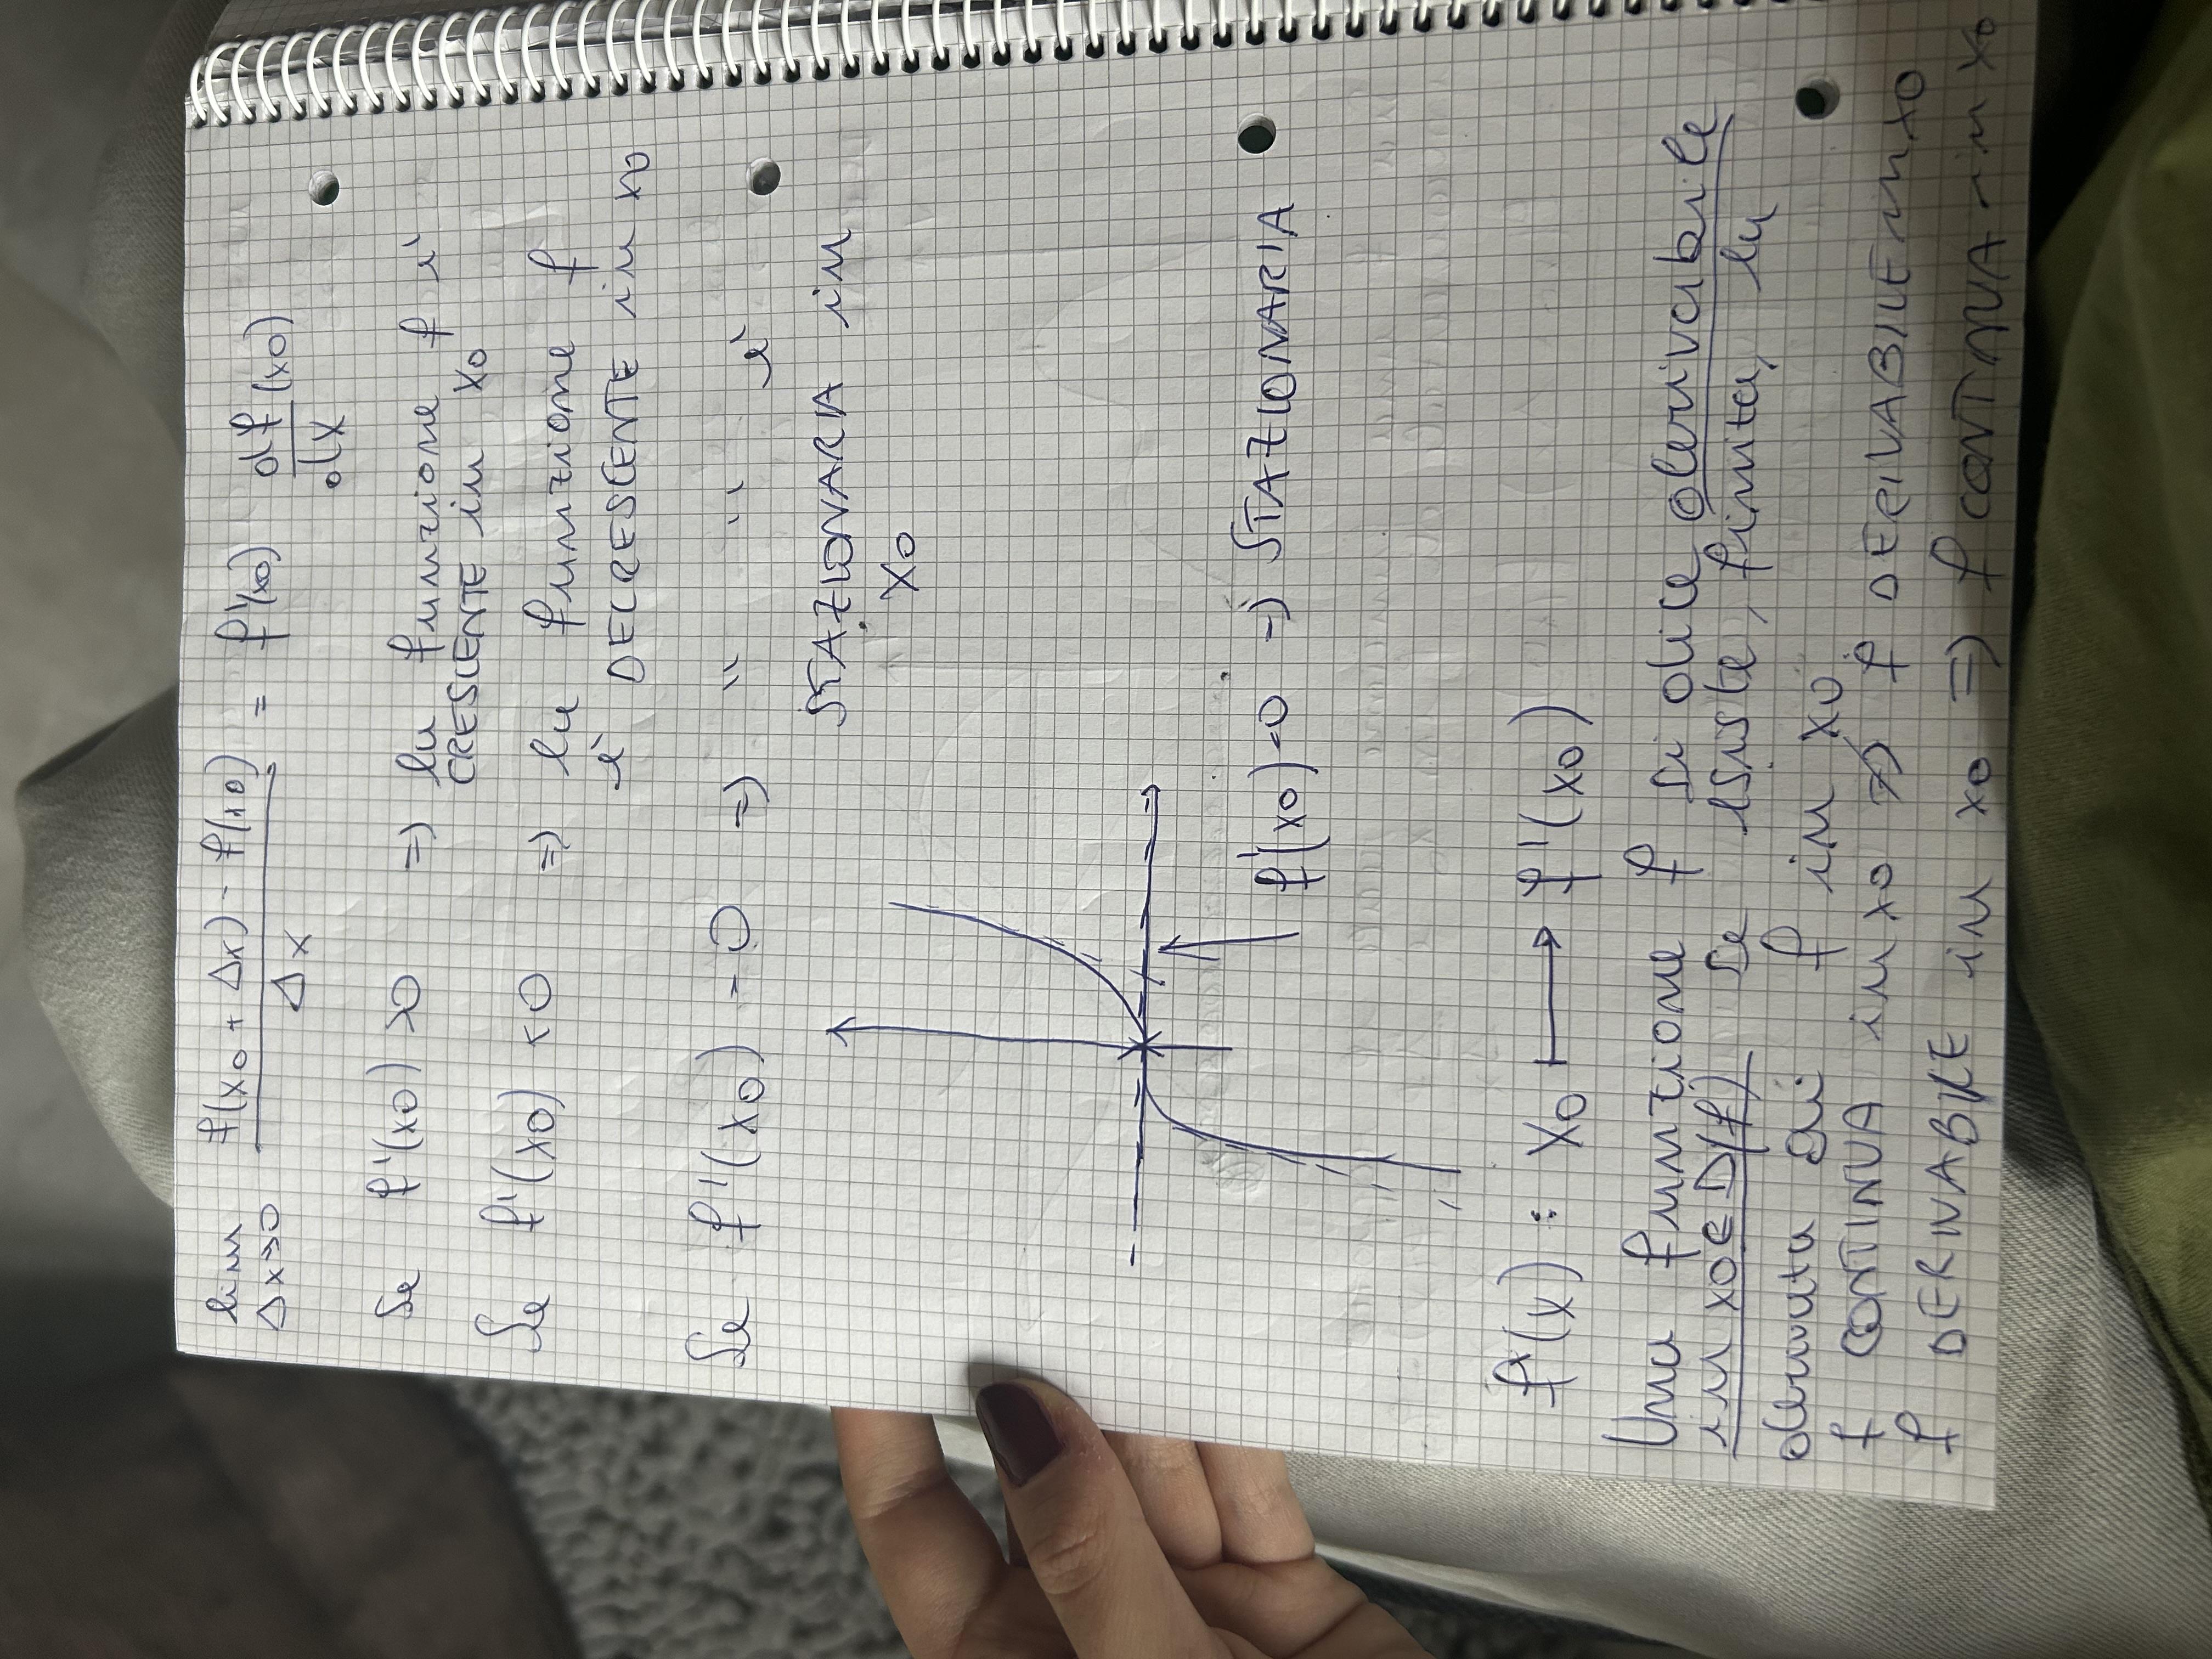 lim f(x0 + Δx) - f(x0) = f'(x0) df (x0)
Δx→0 Δx dx
Se f'(x0) >0 => la funzione f è
CRESCENTE in x0
Se f'(x0) <0 => la funzione f
è DECRESCENTE in x0
Se f'(x0) = 0 => " " " è
STAZIONARIA in
x0
f'(x0)=0 => STAZIONARIA
f'(x) : x0 ⟼ f'(x0)
Una funzione f si dice derivabile
in x0∈D(f) se esiste, finita, la
derivata di f in x0
f CONTINUA in x0 ⇏ f DERIVABILE in x0
f DERIVABILE in x0 => f CONTINUA in x0